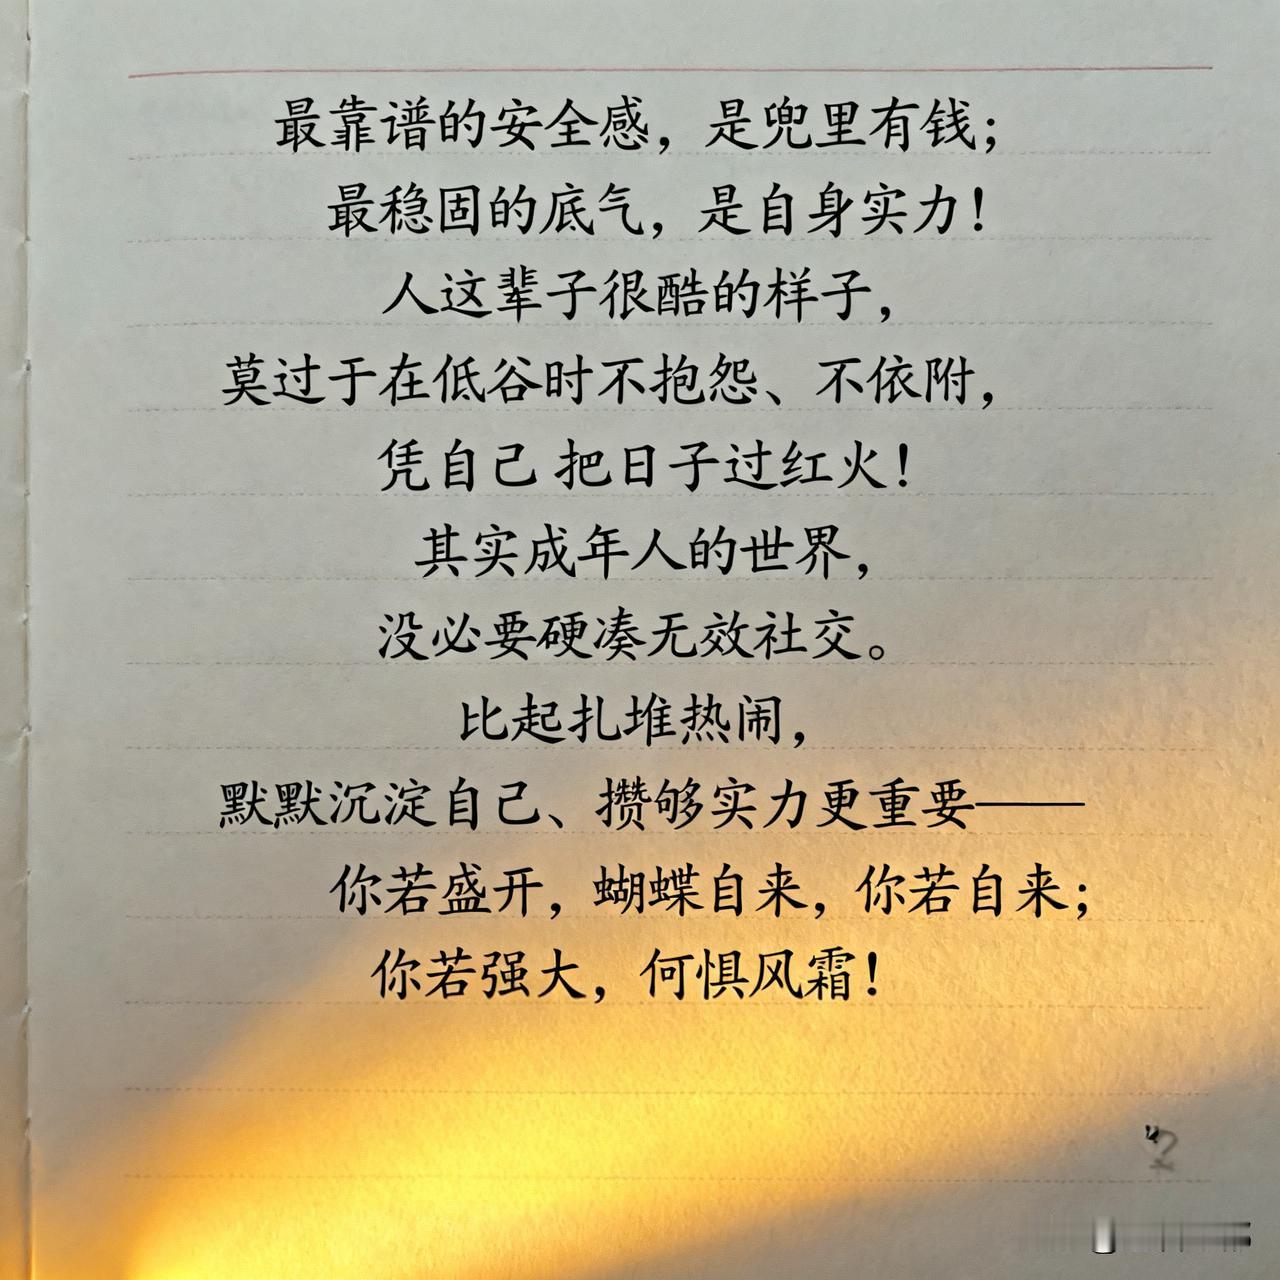 最靠谱的安全感，是兜里有钱；
最稳固的底气，是自身实力！
人这辈子很酷的样子，
莫过于在低谷时不抱怨、不依附，
凭自己 把日子过红火！
其实成年人的世界，
没必要硬凑无效社交。
比起扎堆热闹，
默默沉淀自己、攒够实力更重要——
你若盛开，蝴蝶自来，你若自来；
你若强大，何惧风霜！